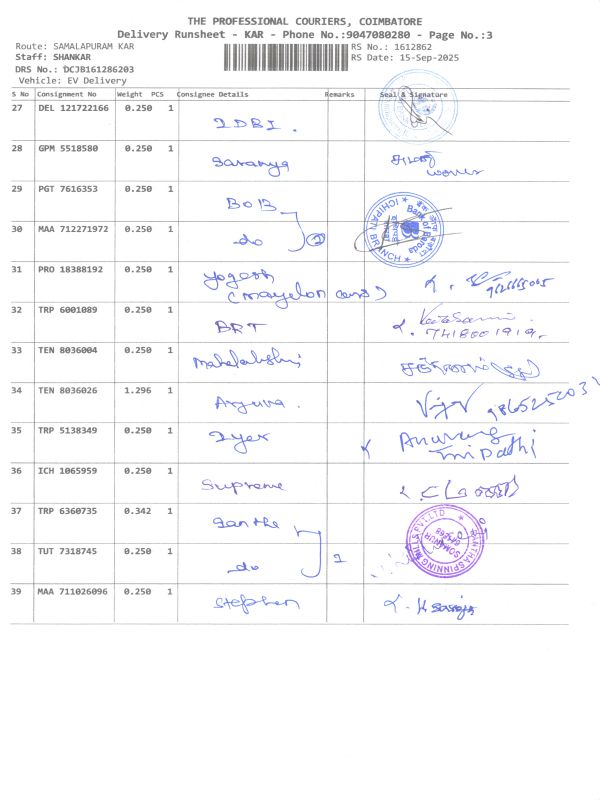 THE PROFESSIONAL COURIERS, COIMBATORE
Delivery Runsheet - KAR - Phone No.:9047080280 - Page No.:3
Route: SAMALAPURAM KAR
RS No.: 1612862
Staff: SHANKAR
RS Date: 15-Sep-2025
DRS No.: DCJB161286203
Vehicle: EV Delivery
S No Consignment No Weight PCS Consignee Details Remarks Seal & Signature
27 DEL 121722166 0.250 1
IDBI.
28 GPM 5518580 0.250 1
Saranya
29 PGT 7616353 0.250 1
BOB
30 MAA 712271972 0.250 1
do 2
Bank of Baroda
BRANCH
31 PRO 18388192 0.250 1
Yogesh
32 TRP 6001089 0.250 1
BRT
7418601919
33 TEN 8036004 0.250 1
34 TEN 8036026 1.296 1
35 TRP 5138349 0.250 1
Iyer
Anurag
Tripathi
36 ICH 1065959 0.250 1
Supreme
37 TRP 6360735 0.342 1
SPINNING MILLS PVT LTD
SOMANUR
38 TUT 7318745 0.250 1
do
39 MAA 711026096 0.250 1
Stephen